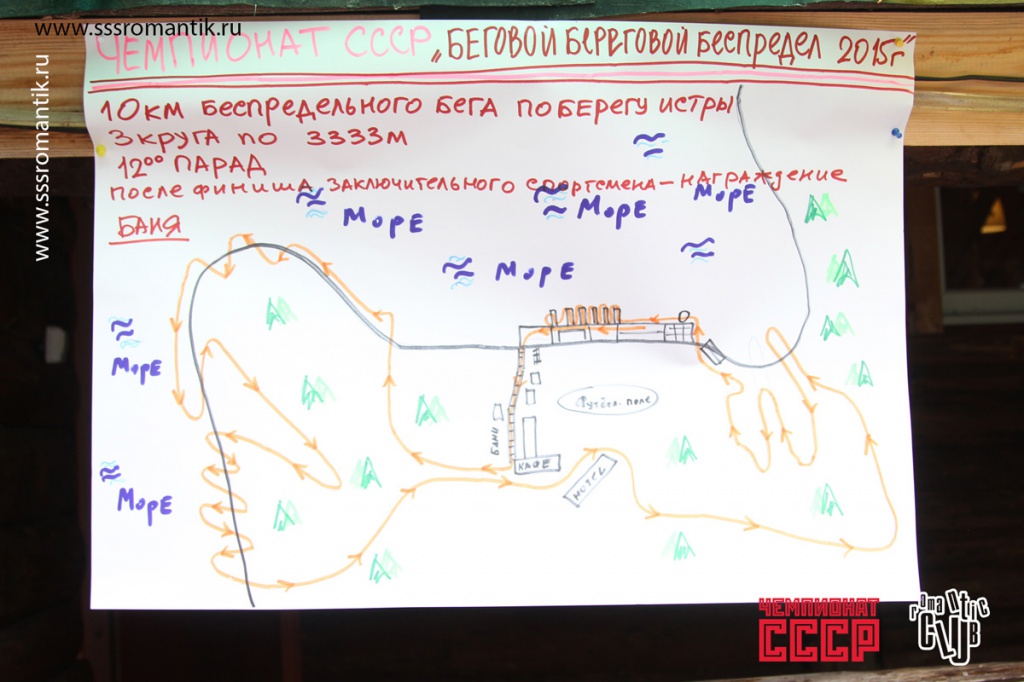 www.sssromantik.ru
www.sssromantik.ru
ЧЕМПИОНАТ СССР „БЕГОВОЙ БЕРЕГОВОЙ БЕСПРЕДЕЛ 2015г"
10 КМ БЕСПРЕДЕЛЬНОГО БЕГА ПО БЕРЕГУ ИСТРЫ
3 КРУГА ПО 3333М
12⁰⁰ ПАРАД
ПОСЛЕ ФИНИША ЗАКЛЮЧИТЕЛЬНОГО СПОРТСМЕНА – НАГРАЖДЕНИЕ
БАНЯ
МОРЕ
МОРЕ
МОРЕ
МОРЕ
МОРЕ
МОРЕ
Футбол. поле
БАНИ
КАФЕ
HOTEL
ЧЕМПИОНАТ
СССР
romantic
CLUB